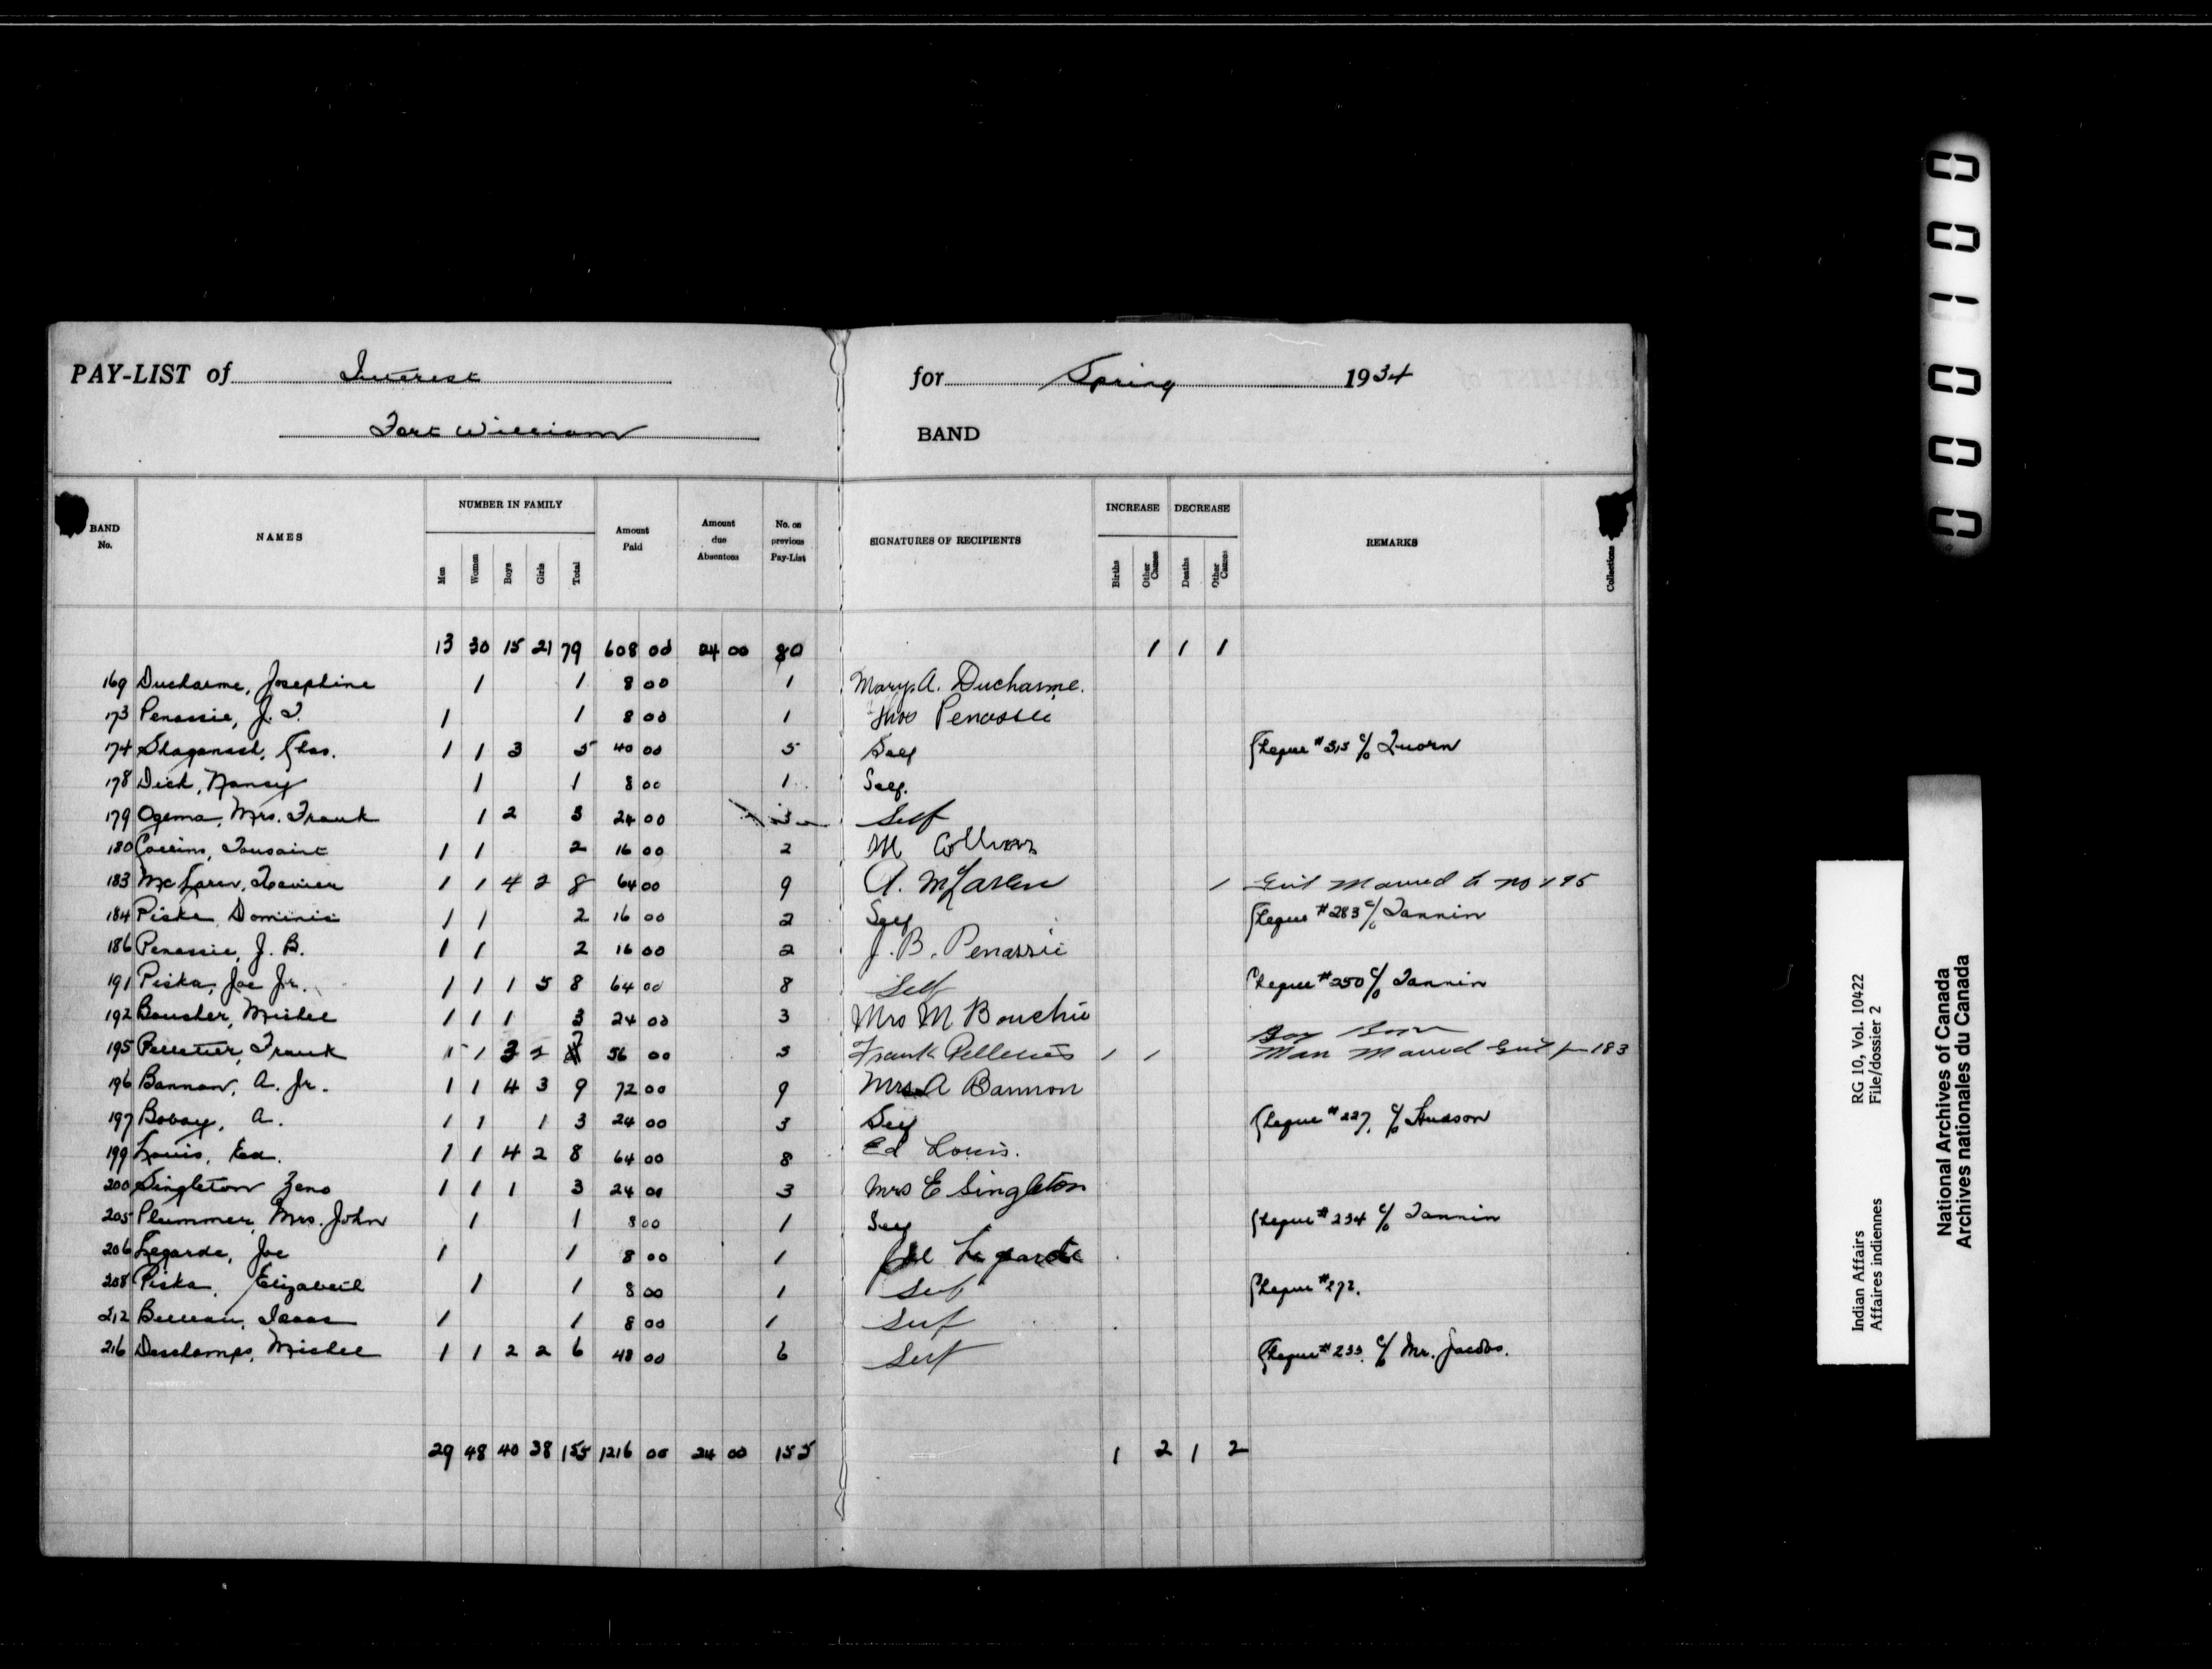 PAY-LIST of Interest for Spring 1934
Fort William BAND
BAND No. NAMES NUMBER IN FAMILY Men Women Boys Girls Total Amount Paid Amount due Absentees No. on previous Pay-List SIGNATURES OF RECIPIENTS INCREASE Births Other Causes DECREASE Deaths Other Causes REMARKS Collections
13 30 15 21 79 608 00 24 00 80 1 1 1
169 Ducharme, Josephine 1 1 8 00 1 Mary A. Ducharme.
173 Penassie, J. I. 1 1 8 00 1 Penassie
174 Shaganash, Chas. 1 1 3 5 40 00 5 Self Cheque # 313 c/o Quorn
178 Dick, Nancy 1 1 8 00 1 Self.
179 Ogema, Mrs. Frank 1 2 3 24 00 3 Self
180 Collins, Tousaint 1 1 2 16 00 2 M Collins
183 McLaren, Xavier 1 1 4 2 8 64 00 9 A. McLaren 1 Girl Married to no 195
184 Piska Dominic 1 1 2 16 00 2 Self Cheque # 283 c/o Tannin
186 Penassie, J. B. 1 1 2 16 00 2 J. B. Penassie
191 Piska, Joe Jr. 1 1 1 5 8 64 00 8 Self Cheque # 250 c/o Tannin
192 Boucher, Michel 1 1 1 3 24 00 3 Mrs M Bouchie
195 Pelletier, Frank 1 1 3 2 7 56 00 5 Frank Pelletier 1 1 Boy Born
Man Married Girl fr 183
196 Bannon, A. Jr. 1 1 4 3 9 72 00 9 Mrs A Bannon
197 Boboy, A. 1 1 1 3 24 00 3 Self Cheque # 227, c/o Hudson
199 Louis, Ed. 1 1 4 2 8 64 00 8 Ed Louis.
200 Singleton Zeno 1 1 1 3 24 00 3 Mrs E Singleton
205 Plummer, Mrs. John 1 1 8 00 1 Self Cheque # 234 c/o Tannin
206 Legarde, Joe 1 1 8 00 1 Legarde
208 Piska, Elizabeth 1 1 8 00 1 Self Cheque # 272.
212 Belleau, Isaac 1 1 8 00 1 Self
216 Deschamps, Michel 1 1 2 2 6 48 00 6 Self Cheque # 233. c/o Mr. Jacobs.
29 48 40 38 155 1216 00 24 00 155 1 2 1 2
Indian Affairs RG 10, Vol. 10422
Affaires indiennes File/dossier 2
National Archives of Canada
Archives nationales du Canada
0001000